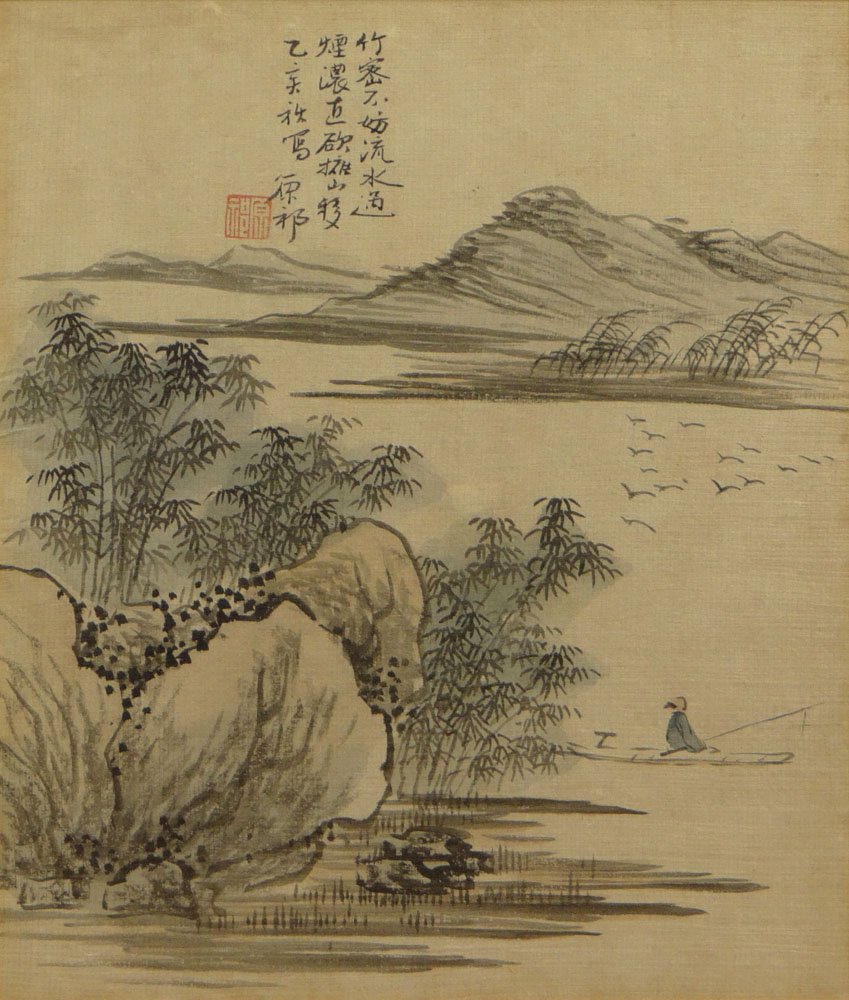 竹密不妨流水過
煙濃直欲擁山移
乙亥秋寫 原祁
原祁